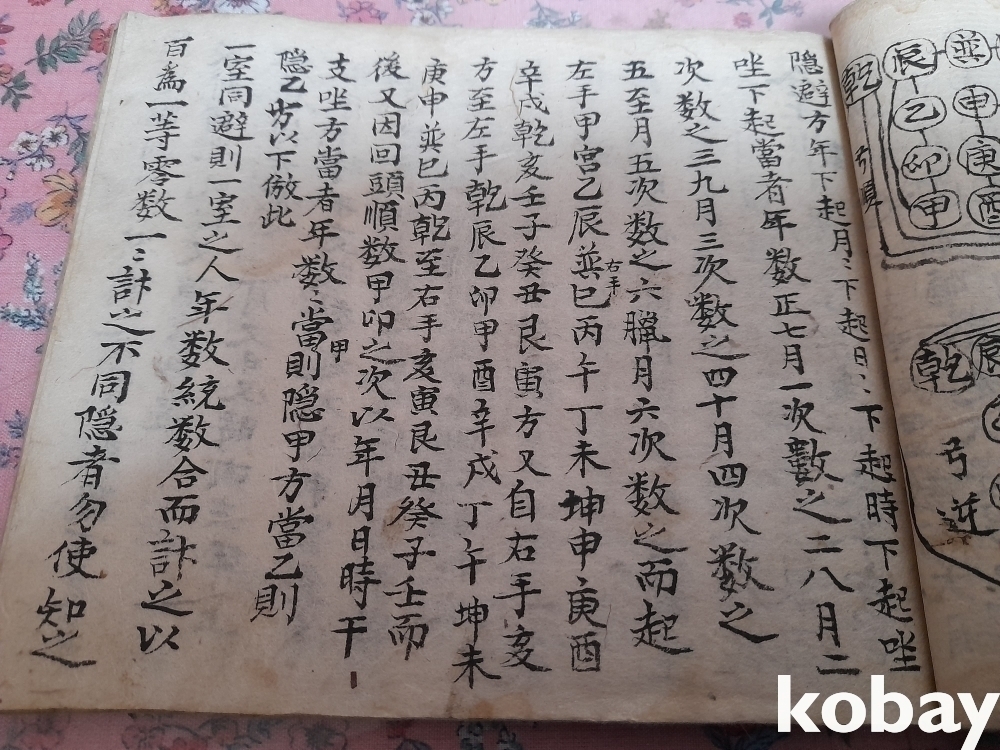 乾 辰 巽
乙 申
卯 庚
甲 酉
弓順
乾 辰
弓逆
隐避方年下起月ミ下起日ミ下起時下起坐
坐下起當者年數正七月一次數之二八月二
次数之三九月三次数之四十月四次数之
五至月五次数之六臘月六次数之而起
左手甲宮乙辰巽右手巳丙午丁未坤申庚酉
辛戌乾亥壬子癸丑艮寅方又自右手亥
方至左手乾辰乙卯甲酉辛戌丁午坤未
庚申巽巳丙乾至右手亥寅艮丑癸子壬而
後又因回頭順数甲卯之次以年月日時干
支坐方當者年数ミ當甲則隐甲方當乙則
隐乙方以下倣此
一室同避則一室之人年数統数合而計之以
百爲一等零数一ミ計之不同隐者勿使知之
kobay